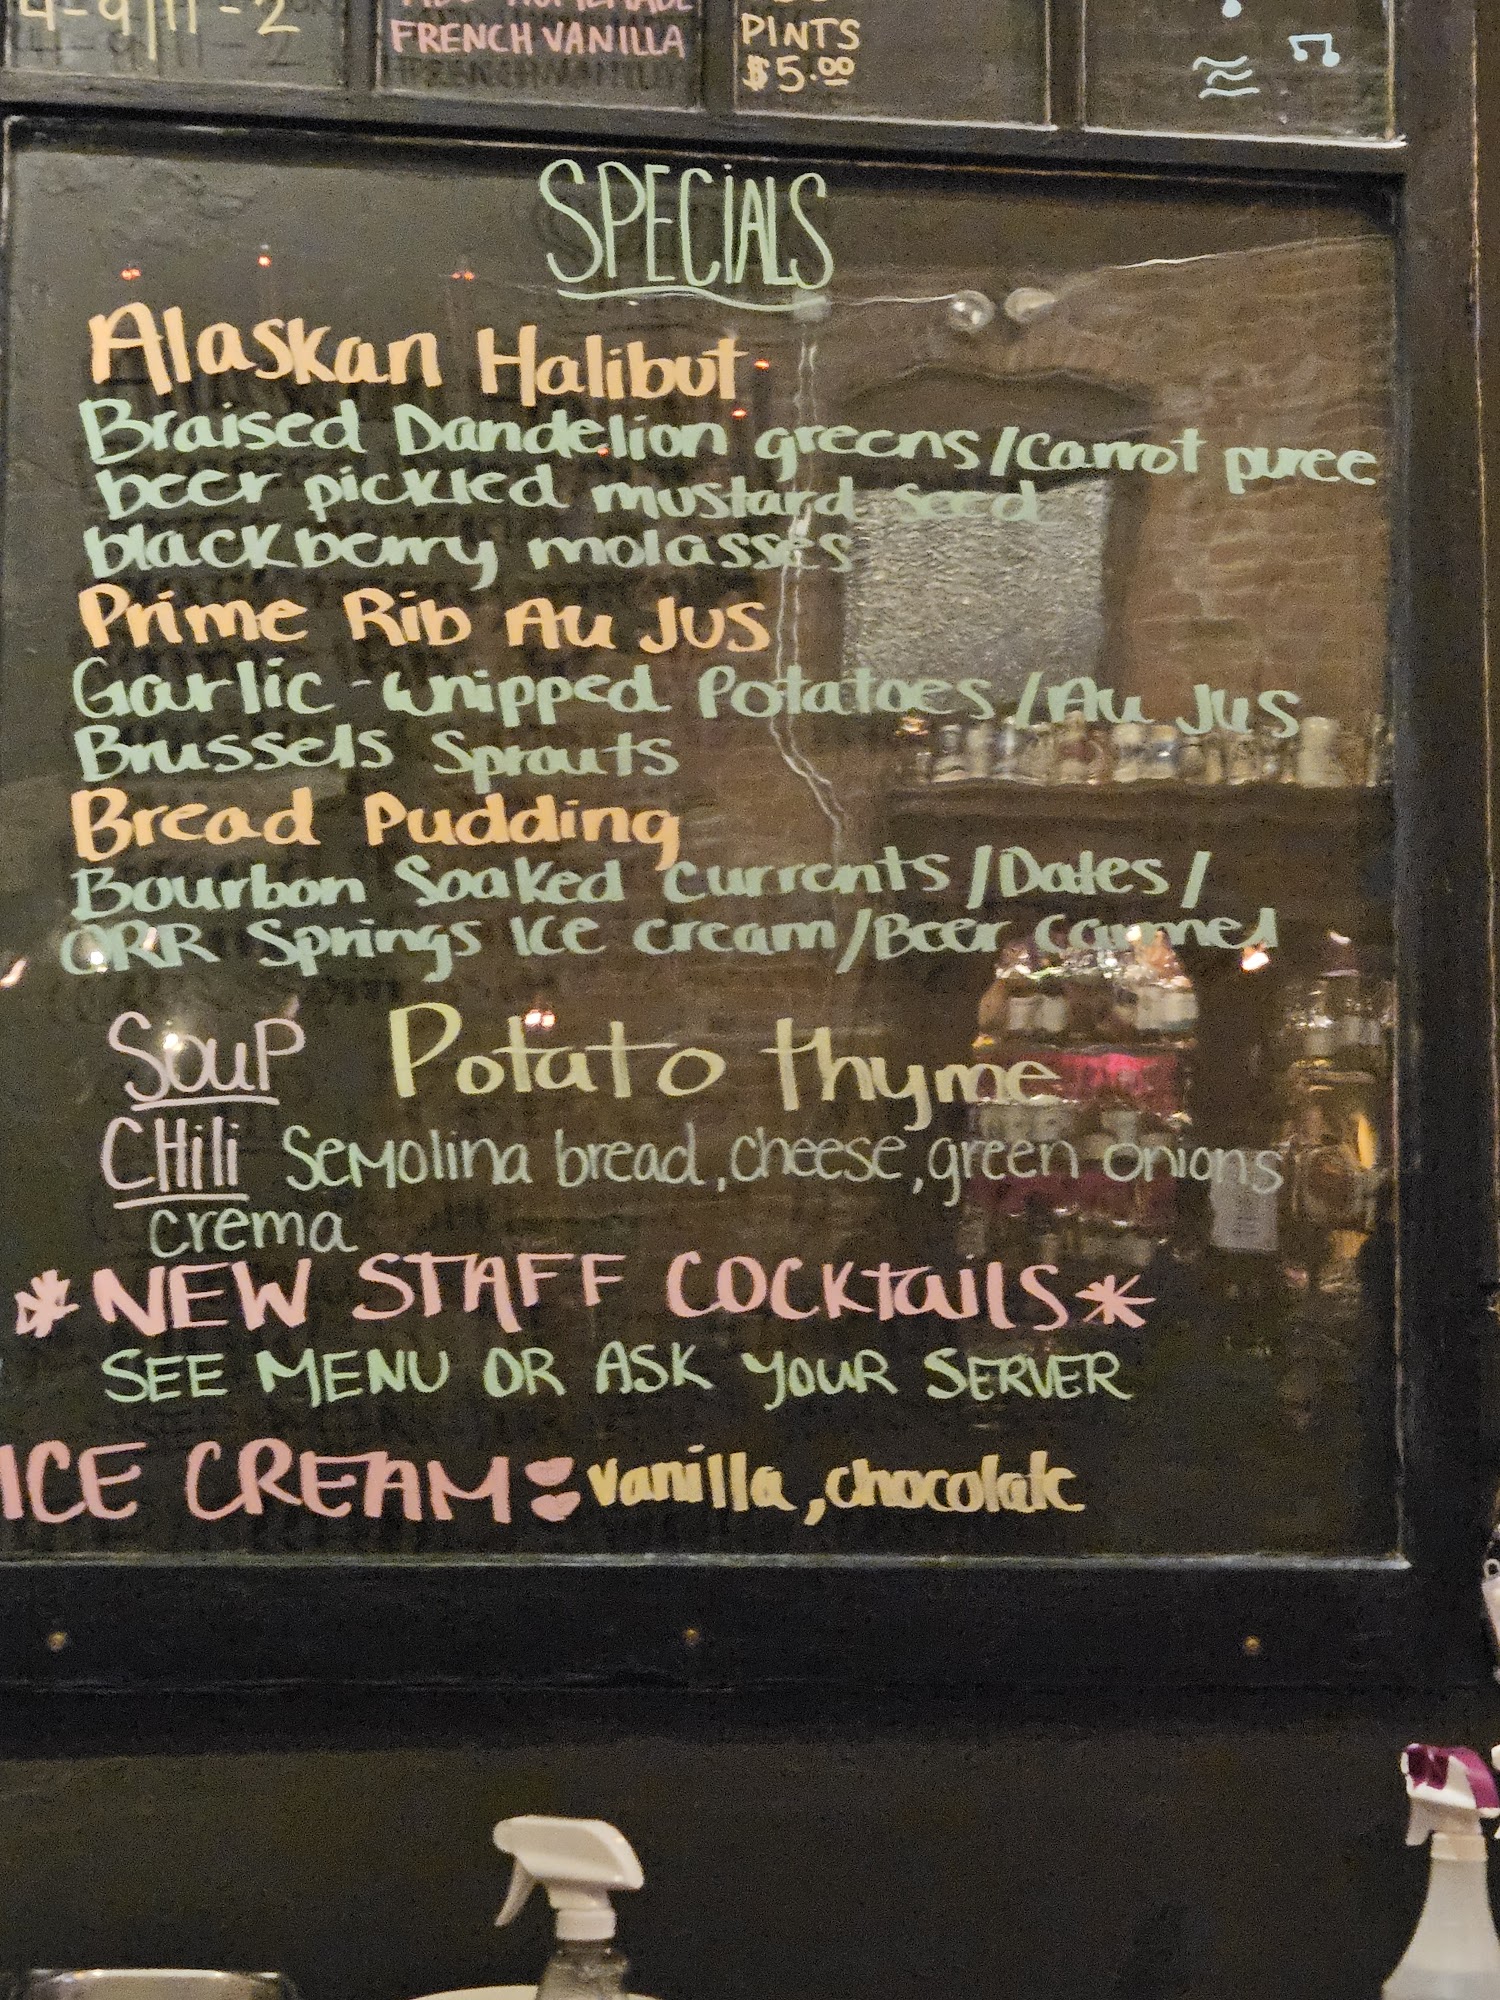 4-9/11-2
FRENCH VANILLA
PINTS
$5.00
SPECiALS
Alaskan Halibut
Braised Dandelion greens/Carrot puree
beer pickled mustard seed
blackberry molasses
Prime Rib Au Jus
Garlic-whipped Potatoes/Au Jus
Brussels Sprouts
Bread Pudding
Bourbon Soaked currants/Dates/
ORR Springs ICE cream/Beer Caramel
SouP Potato thyme
CHili SeMolina bread, cheese, green onions
crema
*NEW STAFF COCKtaiLS*
SEE MENU OR ASK YOUR SERVER
ICE CREAM: vanilla, chocolate